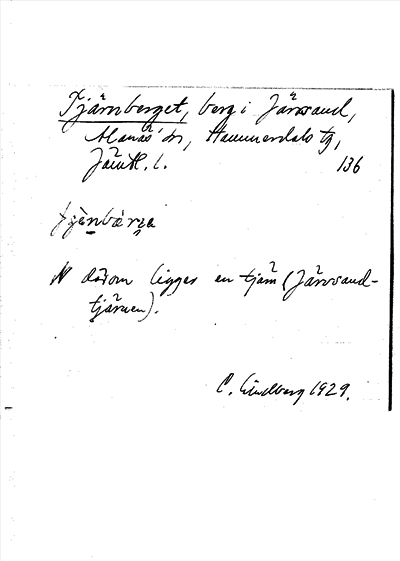 Tjärnberget, berg i Järvsand,
Alanäs sn, Hammerdals tg,
Jämtl. l. 136
N därom ligger en tjärn (Järvsand-
tjärnen).
C. Lindberg 1929.